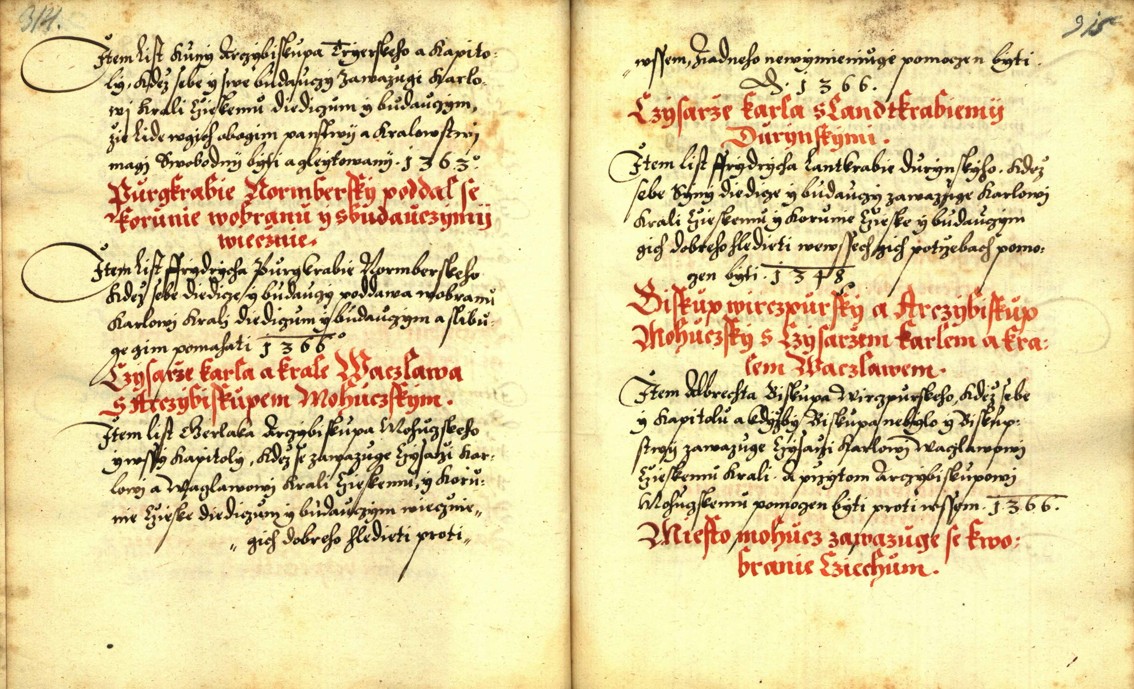 314.
Item List Kuny Arczybiskupa Tryerskeho a Kapito:
ly, Kdez sebe y swe budauczy zawazuge Karlo:
wj Krali Czeskemu diediczum y budauczym,
zie Lide wgich obogim panstwij a Kralowstwj
magj Swobodnij byti a gleytowanij. 1363
Purgkrabie Normbersky poddal se
Korunie wobranu y sbudauczymij
wiecznie.
Item List Ffrydrycha Purgkrabie Normberskeho
Kdez sebe diedicze y budauczy poddawa wobranu
Karlowj Krali diediczum y budauczym a slibu:
ge gim pomahati 1366
Czysarze karla a krale Waczlawa
s Arczybiskupem Mohuczskym.
Item list Gerlaka Arczybiskupa Mohuczskeho
y wssy Kapitoly, Kdez se zawazuge Czysarzi Kar:
lowi a Waczlawowi Krali Czieskemu, y Koru:
nie Czieske diediczum y budauczym wiecznie
gich dobreho hledieti proti
915
wssem, ziadneho newymieniugie pomoczen byti.
A. 1366.
Czysarze karla s Landtkrabiemij
Durynskymi.
Item list Ffrydrycha Lantkrabie durynskyho. Kdez
sebe Syny diedicze y budauczy zawazuge Karlowi
Krali Czieskemu y Korunie Czieske y budauczym
gich dobreho hledieti wewssech gich potrzebach pomo:
czen byti. 1348
Biskup wirczpursky a Arczybiskup
Mohuczsky s Czysarzem karlem a kra:
lem Waczlawem.
Item Albrechta Biskupa Wirczpurskeho, Kdez sebe
y Kapitolu a Kdyzby Biskupa nebylo y Biskup:
stwij zawazuge Czysarzi Karlowi Waczlawowi
Czieskemu Krali. a przytom Arczybiskupowi
Mohuczskemu pomoczen byti proti wssem. 1366.
Miesto mohucz zawazuge se kwo:
branie Cziechum.